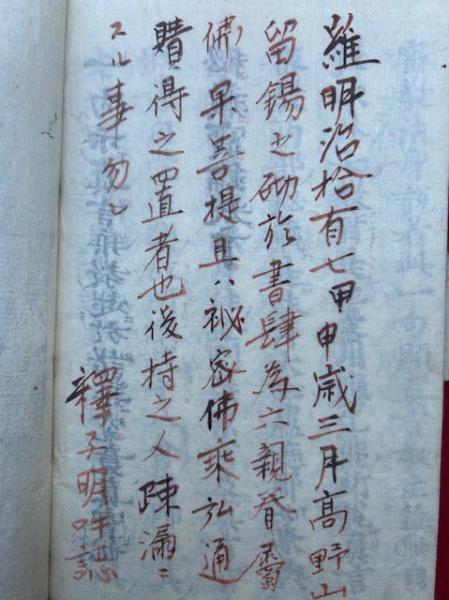 維明治拾有七甲申歳三月高野山
留錫之砌於書肆為六親眷属
佛果菩提且ハ祕密佛乗弘通
購得之置者也後持之人踈漏ニ
スル事勿レ
釋子明吽誌